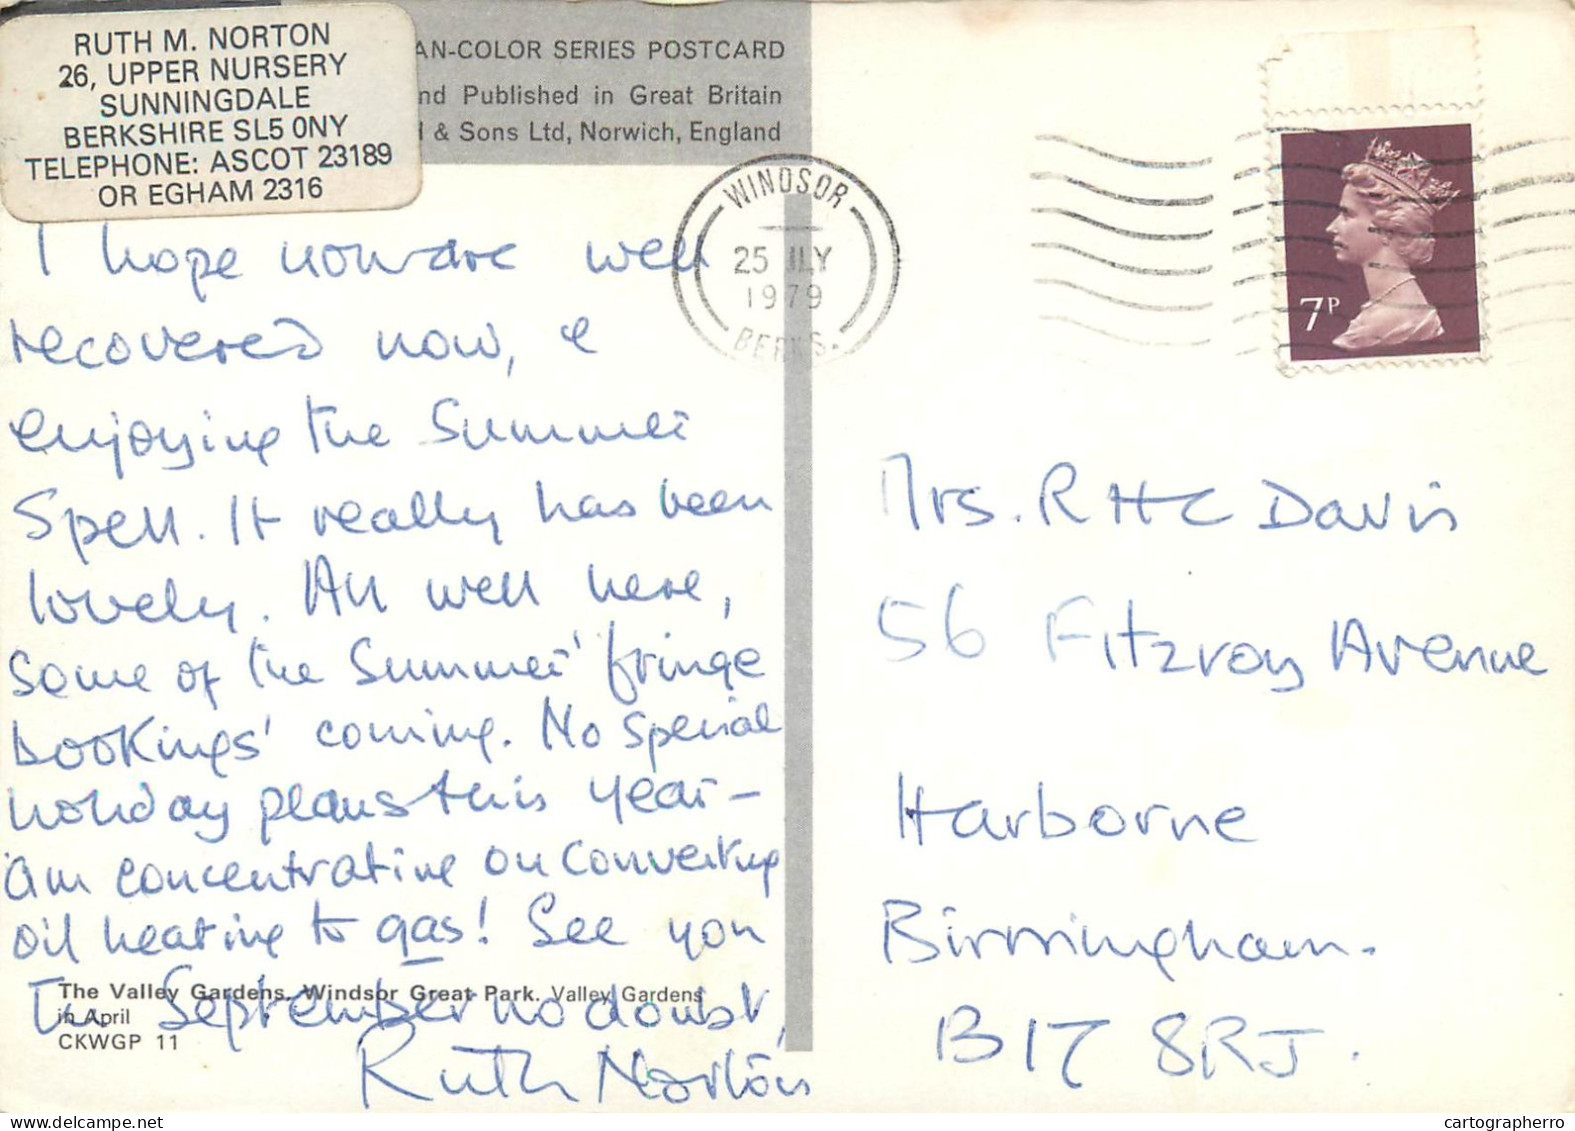 RUTH M. NORTON
26, UPPER NURSERY
SUNNINGDALE
BERKSHIRE SL5 0NY
TELEPHONE: ASCOT 23189
OR EGHAM 2316
AN-COLOR SERIES POSTCARD
nd Published in Great Britain
& Sons Ltd, Norwich, England
WINDSOR
25 JLY
1979
BERKS.
7P
I hope you are well
recovered now, &
enjoying the Summer
Spell. It really has been
lovely. All well here,
some of the Summer 'fringe
bookings' coming. No special
holiday plans this year -
am concentrating on converting
oil heating to gas! See you
in September no doubt,
Ruth Norton
The Valley Gardens, Windsor Great Park. Valley Gardens
in April
CKWGP 11
Mrs. R H C Davis
56 Fitzroy Avenue
Harborne
Birmingham.
B17 8RJ.
cartographerro